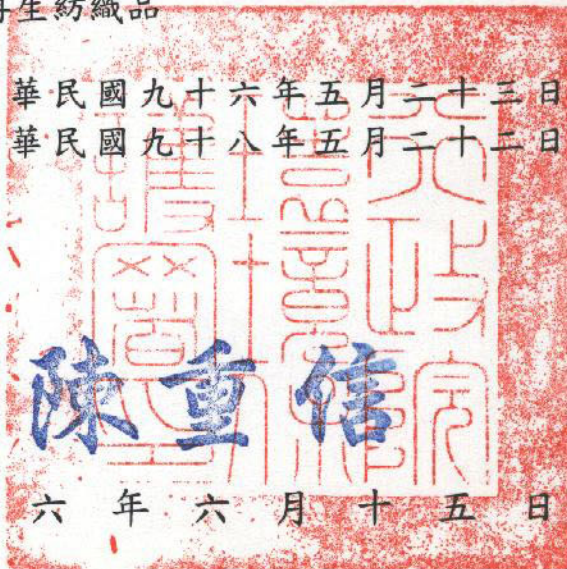 再生紡織品
華民國九十六年五月二十三日
華民國九十八年五月二十二日
行政院環境保護署印
陳重信
六年六月十五日